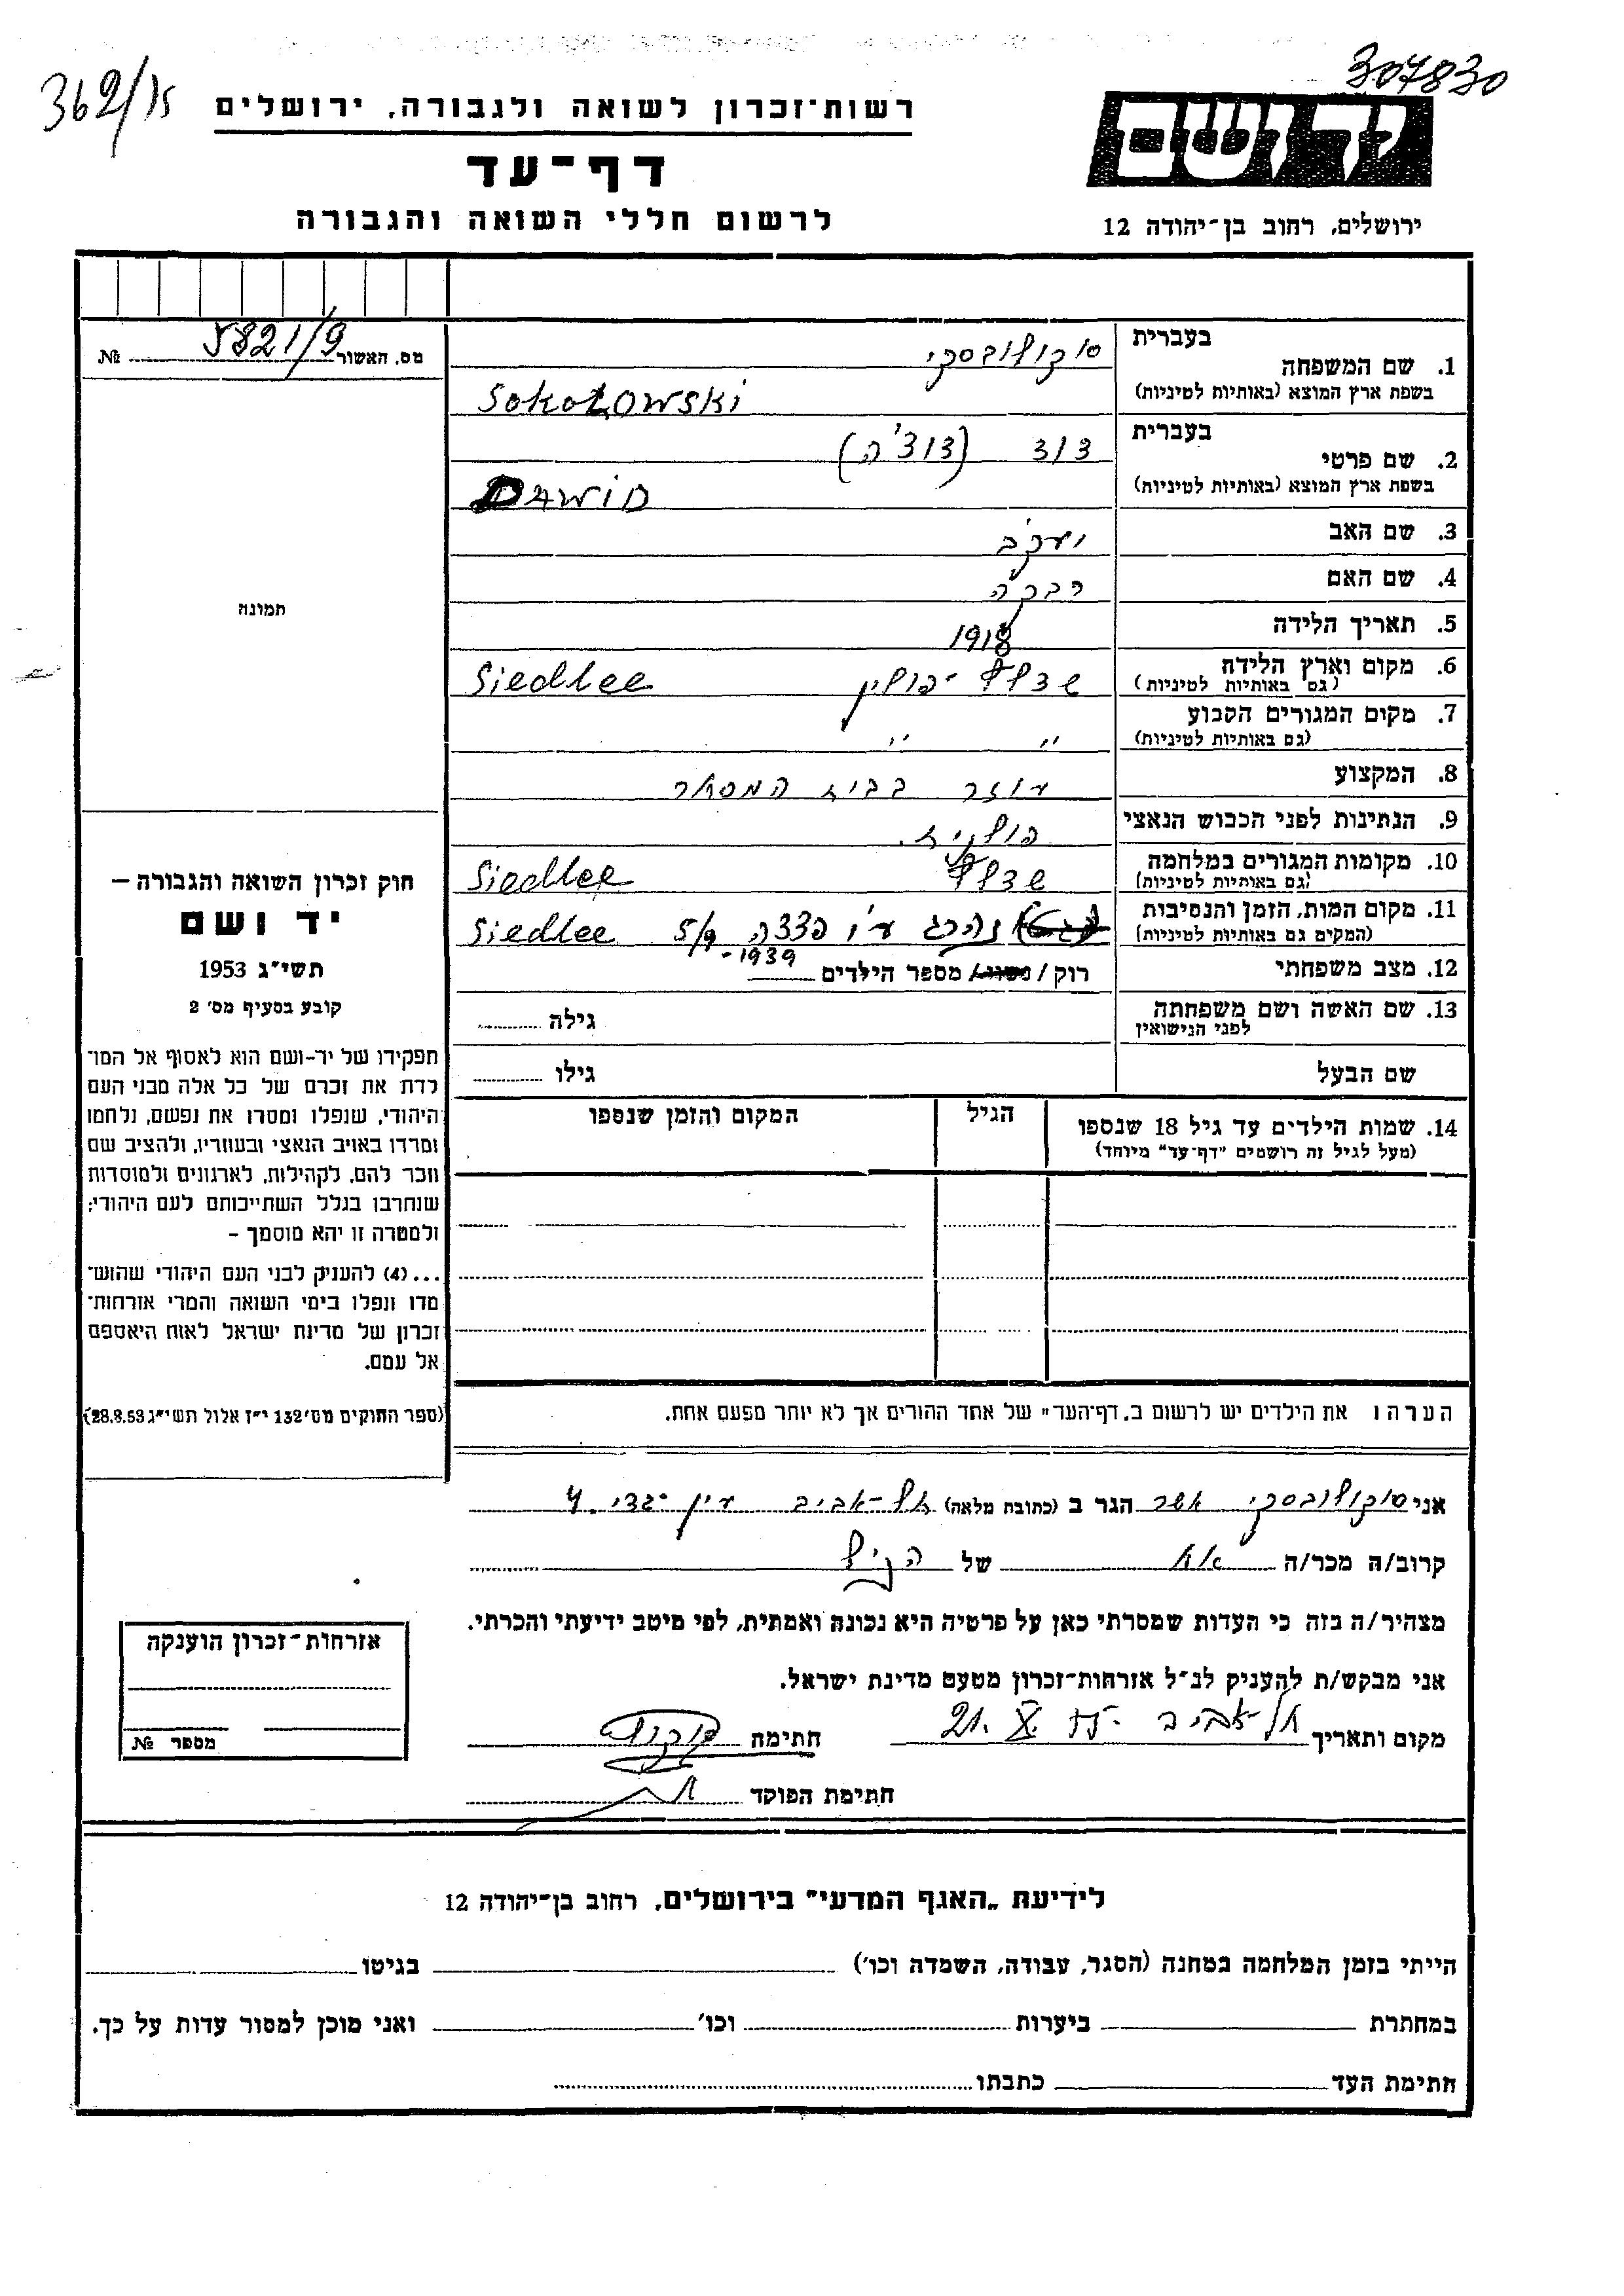 307830
362/15
רשות־זכרון לשואה ולגבורה, ירושלים
דף־עד
לרשום חללי השואה והגבורה
יד ושם
ירושלים, רחוב בן־יהודה 12
מס. האשור 5821/9 №
תמונה
1. שם המשפחה בעברית סוקולובסקי
בשפת ארץ המוצא (באותיות לטיניות) SOKOŁOWSKI
2. שם פרטי בעברית דוד (דודצ'ה)
בשפת ארץ המוצא (באותיות לטיניות) DAWID
3. שם האב יעקב
4. שם האם רבקה
5. תאריך הלידה 1918
6. מקום וארץ הלידה שדלץ - פולין Siedlce
(גם באותיות לטיניות)
7. מקום המגורים הקבוע " "
(גם באותיות לטיניות)
8. המקצוע עוזר בבית המסחר
9. הנתינות לפני הכבוש הנאצי פולנית.
10. מקומות המגורים במלחמה שדלץ Siedlce
(גם באותיות לטיניות)
11. מקום המות, הזמן והנסיבות נהרג ע"י פצצה 5/9 Siedlce
(המקום גם באותיות לטיניות) 1939-
12. מצב משפחתי רוק / נשוי / מספר הילדים
13. שם האשה ושם משפחתה לפני הנישואין גילה
שם הבעל גילו
14. שמות הילדים עד גיל 18 שנספו הגיל המקום והזמן שנספו
(מעל לגיל זה רושמים "דף־עד" מיוחד)
הערה: את הילדים יש לרשום ב„דף־העד" של אחד ההורים אך לא יותר מפעם אחת.
חוק זכרון השואה והגבורה —
יד ושם
תשי"ג 1953
קובע בסעיף מס' 2
תפקידו של יד-ושם הוא לאסוף אל המו־
לדת את זכרם של כל אלה מבני העם
היהודי, שנפלו ומסרו את נפשם, נלחמו
ומרדו באויב הנאצי ובעוזריו, ולהציב שם
וזכר להם, לקהילות, לארגונים ולמוסדות
שנחרבו בגלל השתייכותם לעם היהודי;
ולמטרה זו יהא מוסמך –
...(4) להעניק לבני העם היהודי שהוש־
מדו ונפלו בימי השואה והמרי אזרחות־
זכרון של מדינת ישראל לאות היאספם
אל עמם.
(ספר החוקים מס' 132 י"ז אלול תשי"ג 28.8.53)
אני סוקולובסקי אשר הגר ב (כתובת מלאה) תל-אביב עין-גדי 4
קרוב/ה מכר/ה אח של הנ"ל
מצהיר/ה בזה כי העדות שמסרתי כאן על פרטיה היא נכונה ואמתית, לפי מיטב ידיעתי והכרתי.
אני מבקש/ת להעניק לנ"ל אזרחות־זכרון מטעם מדינת ישראל.
מקום ותאריך תל-אביב 21. X. חתימה
חתימת הפוקד
אזרחות־זכרון הוענקה
מספר №
לידיעת „האגף המדעי" בירושלים, רחוב בן־יהודה 12
הייתי בזמן המלחמה במחנה (הסגר, עבודה, השמדה וכו') בגיטו
במחתרת ביערות וכו' ואני מוכן למסור עדות על כך.
חתימת העד כתבתו